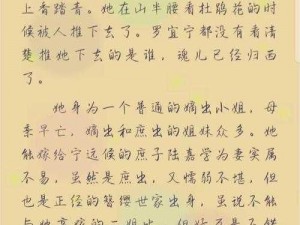 上香踏青。她在山半腰看杜鹃花的时
候被人推下去了。罗宜宁都没有看清
楚推她下去的是谁，魂儿已经归西
了。
她身为一个普通的嫡出小姐，母
亲早亡，嫡出和庶出的姐妹众多。她
能嫁给宁远候的庶子陆嘉学为妻实属
不易，虽然是庶出，又懦弱不堪，但
也是正经的簪缨世家出身，虽说不能